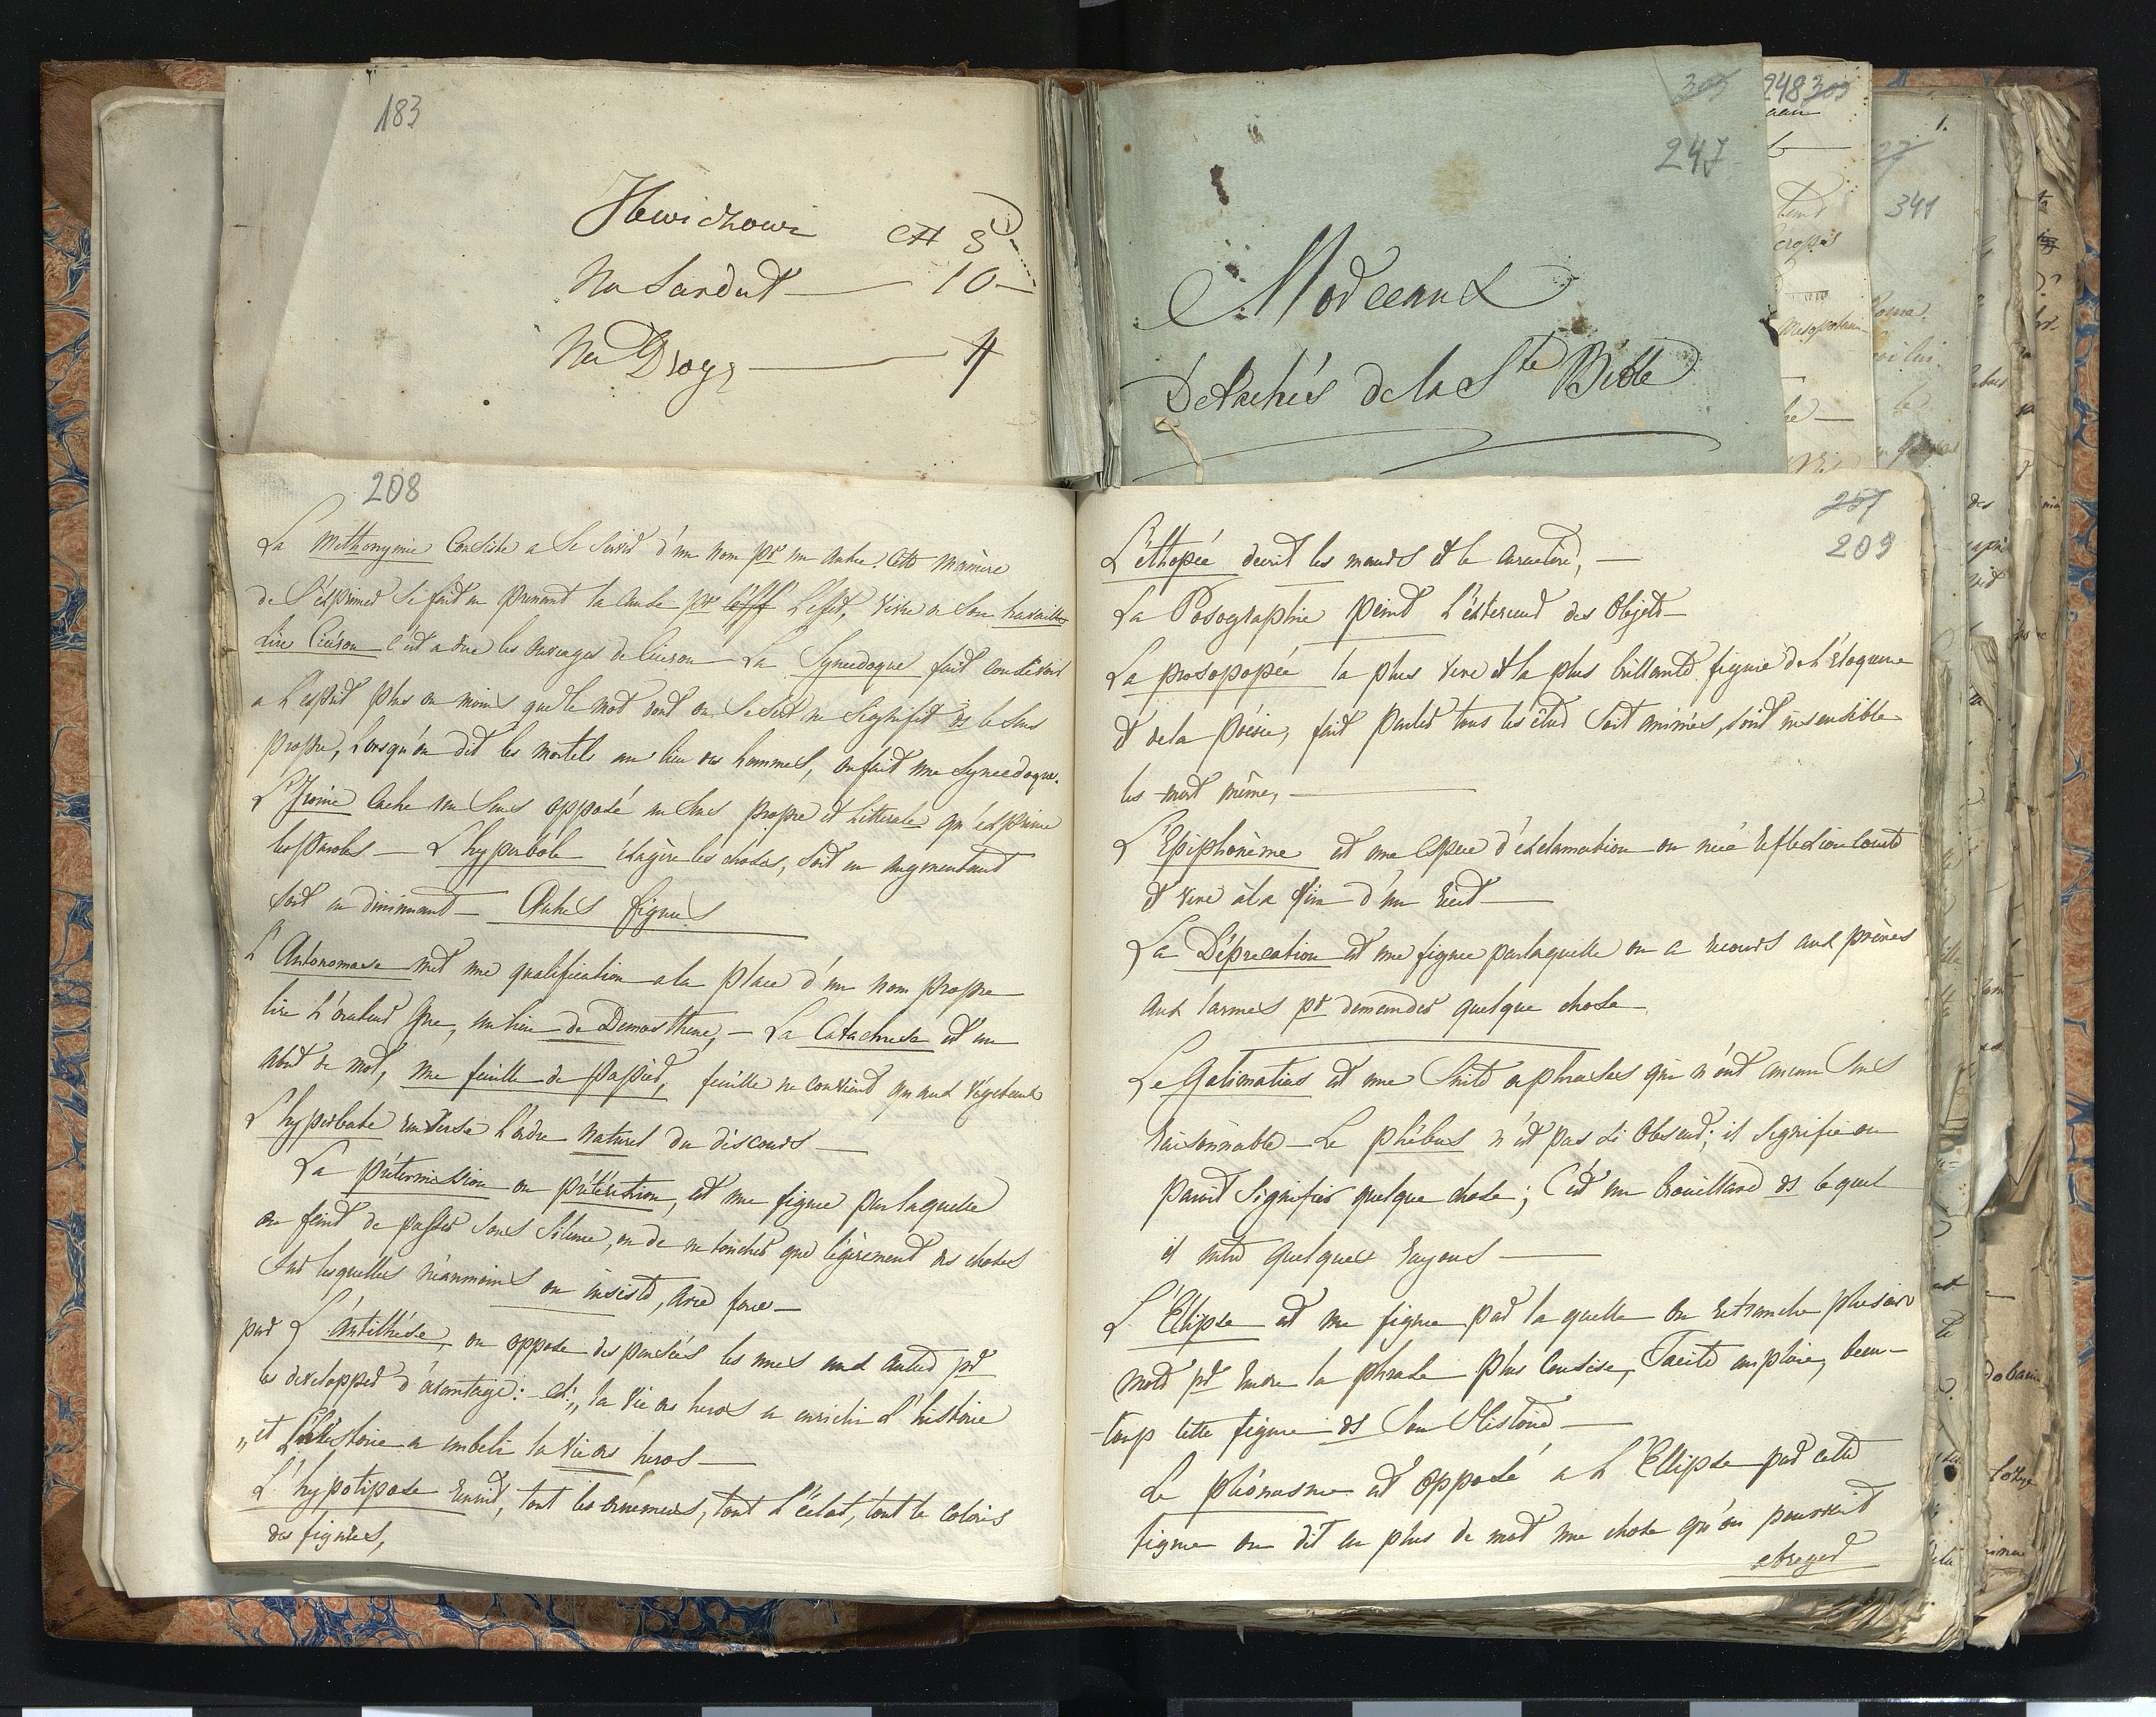 183
# 3
Na Sandał — 10 —
Na Drogę — 4
305
247
Morceaux
Detachés de la Ste Bible
248 305
1.
27
341
208
La Methonymie Consiste a se servir d'un nom pr un autre. Cette manière
de s'exprimer se fait en prenant la cause pr l'éff l'effet, vivre de son travaille
Lire Cicéron c'est a dire les ouvrages de Cicéron — La Synecdoque fait concevoir
a l'esprit plus ou moins que le mot dont on se sert ne signifit ds le sens
propre, Lorsqu'on dit les mortels au lieu des hommes, on fait une Synecdoque.
L'Ironie cache un sens opposé au sens propre et litterale qu'exprime
les paroles — L'hyperbole exagère les choses, soit en augmentant
soit en diminuant — Autres figures
L'Antonomase met une qualification a la place d'un nom propre
lire l'orateur Grec, au lieu de Demosthene, — La Catachrese est un
abus de mot, une feuille de papier, feuille ne convient qu'aux végetaux
L'hyperbate renverse l'ordre naturel du discours —
La prétermission ou prétérition, est une figure par laquelle
on feint de passer sous silence, ou de ne toucher que légèrement des choses
sur lesquelles néanmoins on insiste, avec force —
par L'antithèse, on oppose des pensées les unes aux autres pr
les developper d'avantage: „ la vie des heros a enrichi l'histoire
„ et l'histoire a embeli la vie des heros —
L'hypotipose réunit, tout les ornemens, tout l'éclat, tout le coloris
des figures,
207
209
L'éthopée decrit les mœurs et le caractère, —
La Posographie peint l'exterieur des Objets —
La prosopopée la plus vive et la plus brillante figure de l'éloquence
et de la poésie, fait parler tous les êtres soit animés, soit insensible
les mort même, —
L'Epiphonème est une espece d'exclamation ou une reflection courte
et vive à la fin d'un récit —
La Déprecation est une figure par laquelle on a recours aux prières
aux larmes pr demander quelque chose —
Le Galimatias est une suite de phrases qui n'ont aucun sens
raisonnable — Le phébus n'est pas si obscur; il signifie ou
parait signifier quelque chose; C'est un brouillard ds lequel
il entre quelques rayons —
L'Ellipse est une figure par la quelle on retranche plusieurs
mots pr rendre la phrase plus concise, Tacite emploie, beau-
-coup cette figure ds son Histoire —
Le pléonasme est opposé a l'Ellipse par cette
figure on dit en plus de mot une chose qu'on pourrait
abreger